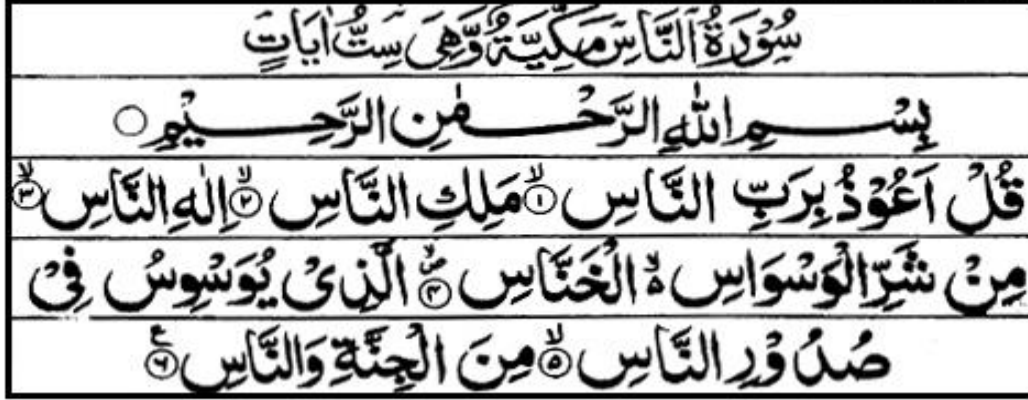 سُوْرَةُ النَّاسِ مَكِّيَّةٌ وَّهِيَ سِتُّ اٰيَاتٍ
بِسْمِ اللّٰهِ الرَّحْمٰنِ الرَّحِيْمِ ○
قُلْ اَعُوْذُ بِرَبِّ النَّاسِ ۙ﴿۱﴾ مَلِكِ النَّاسِ ۙ﴿۲﴾ اِلٰهِ النَّاسِ ۙ﴿۳﴾
مِنْ شَرِّ الْوَسْوَاسِ ۙ۬ الْخَنَّاسِ ۪ۙ﴿۴﴾ الَّذِیْ یُوَسْوِسُ فِیْ
صُدُوْرِ النَّاسِ ۙ﴿۵﴾ مِنَ الْجِنَّةِ وَالنَّاسِ ﴿۶﴾ ع